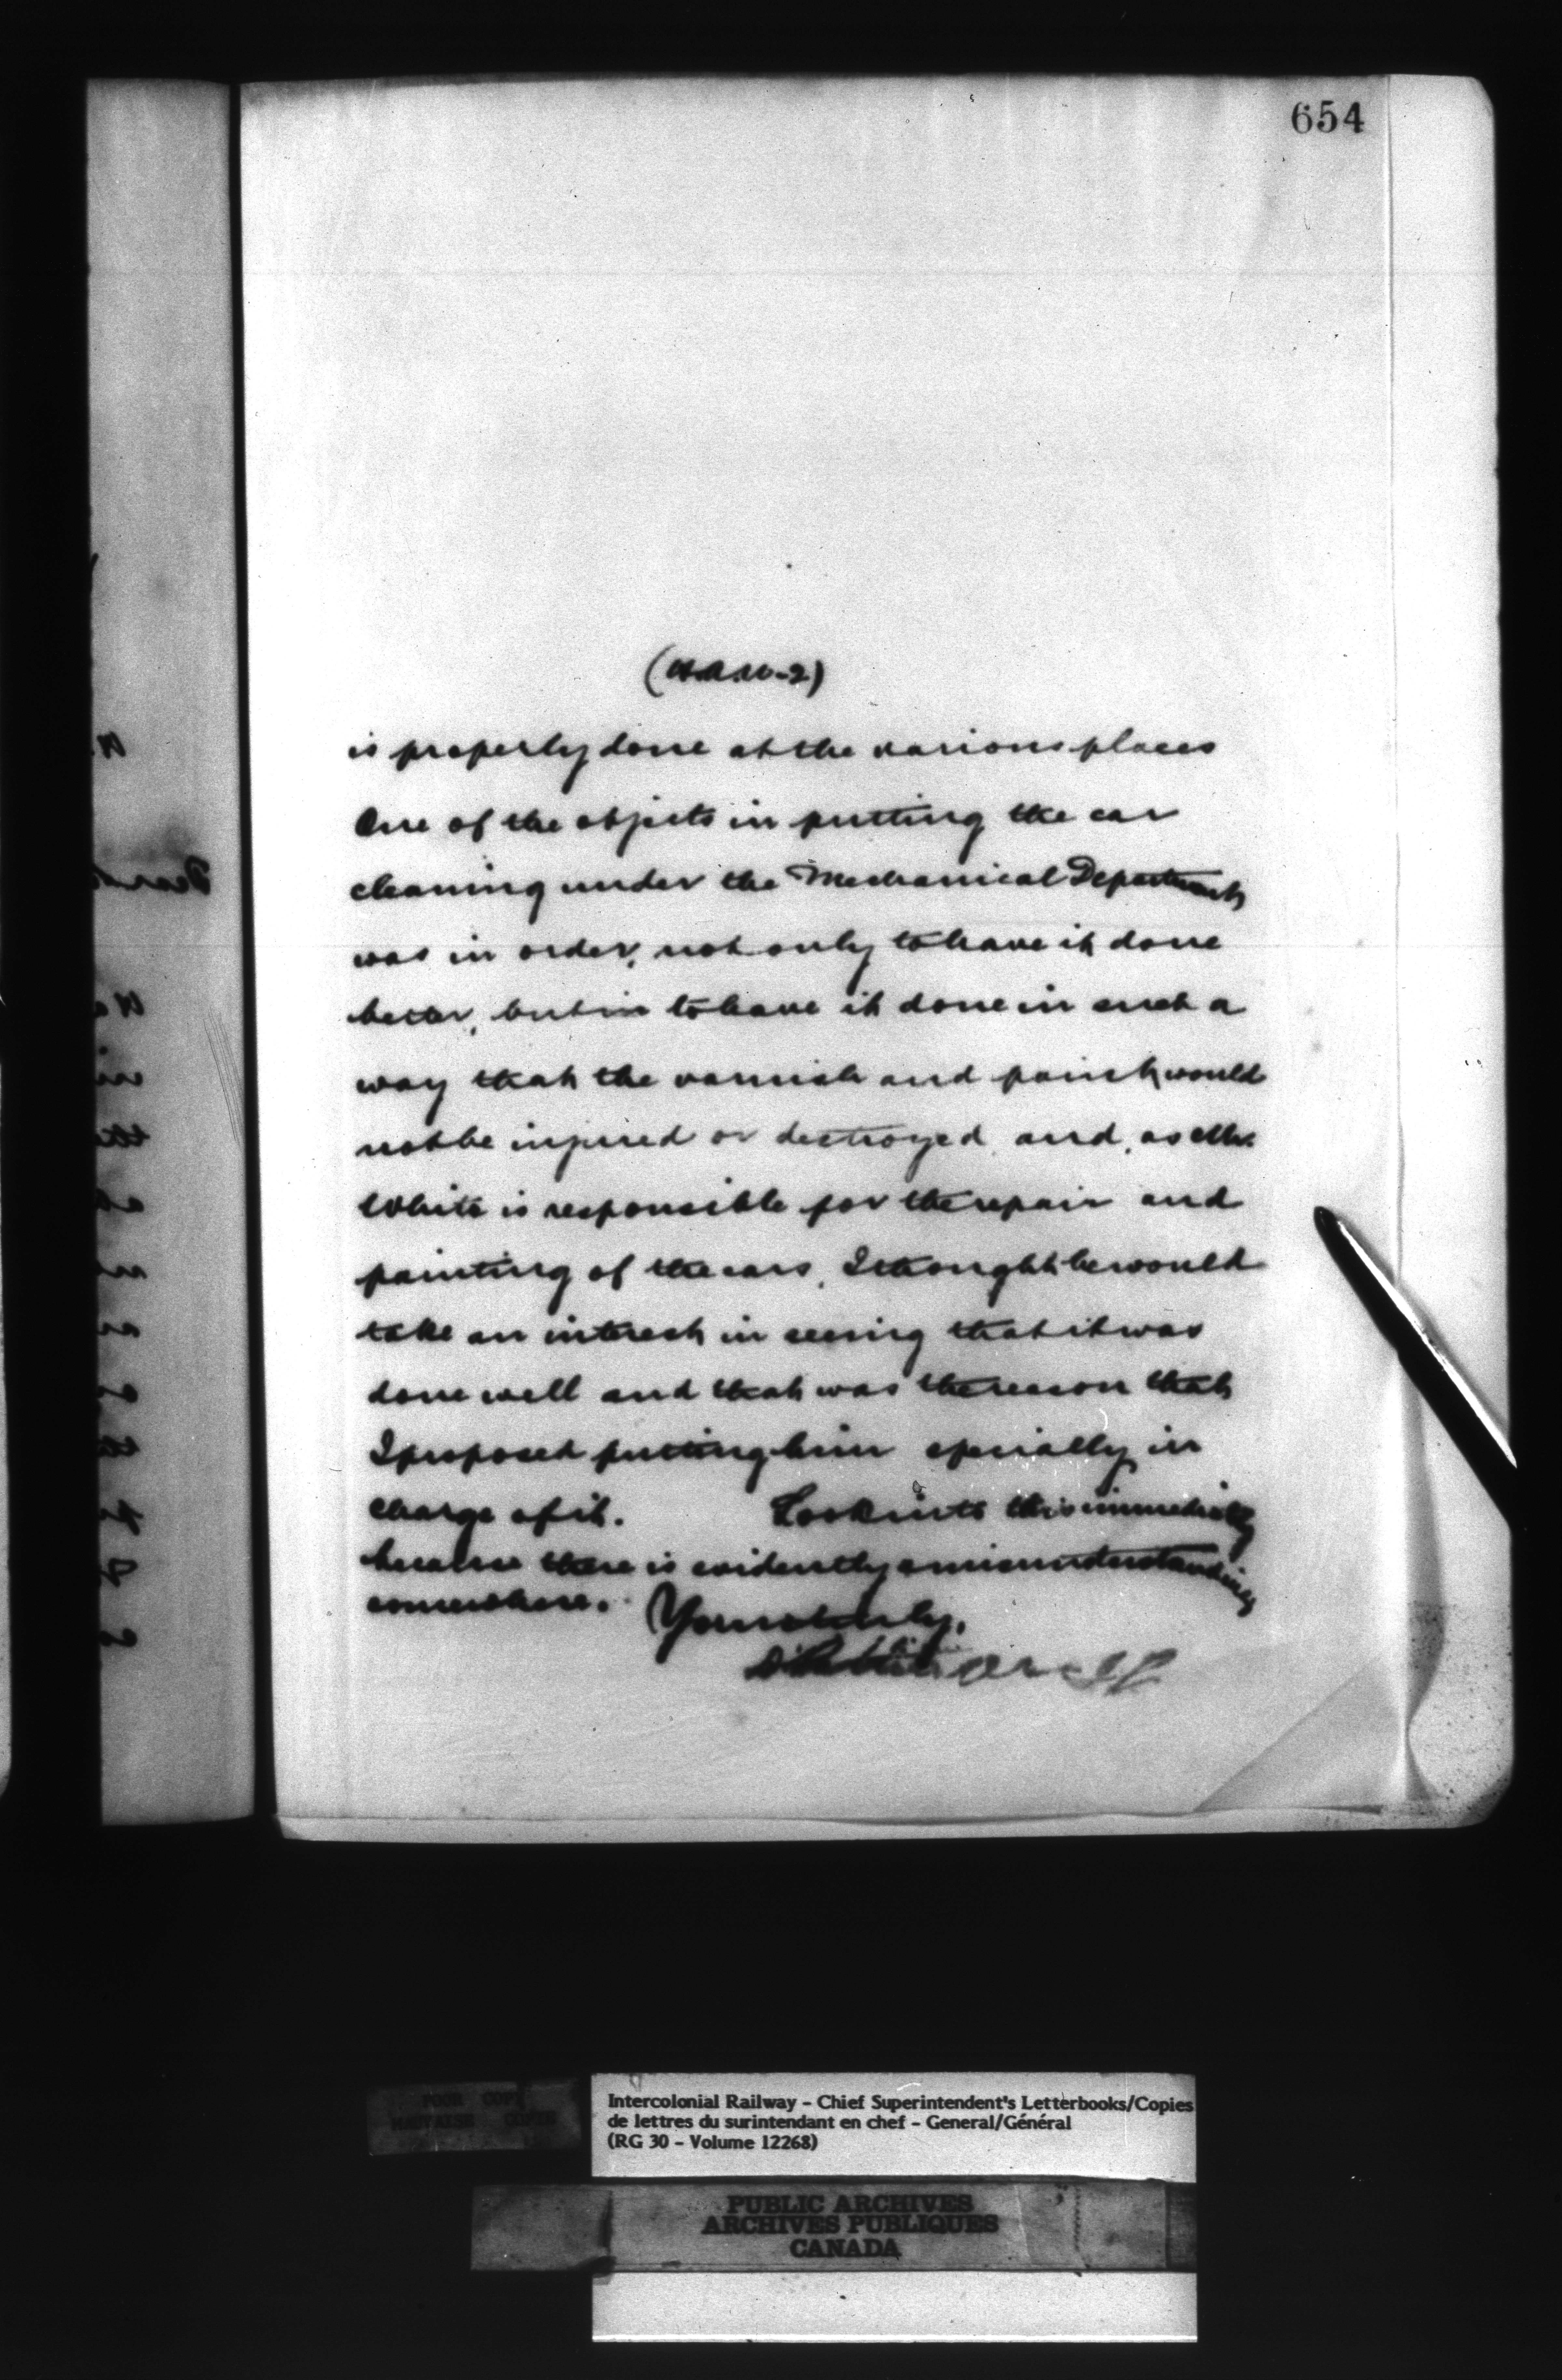 654
(H.A.W-2)
is properly done at the various places
One of the objects in putting the car
cleaning under the Mechanical Department
was in order, not only to have it done
better, but in to have it done in such a
way that the varnish and paint would
not be injured or destroyed, and, as Mr.
White is responsible for the repair and
painting of the cars, I thought he would
take an interest in seeing that it was
done well and that was the reason that
I proposed putting him specially in
charge of it. Look into this immediately
because there is evidently a misunderstanding
somewhere. Yours truly,
D Pottinger
POOR COPY
MAUVAISE COPIE
Intercolonial Railway - Chief Superintendent's Letterbooks/Copies
de lettres du surintendant en chef - General/Général
(RG 30 - Volume 12268)
PUBLIC ARCHIVES
ARCHIVES PUBLIQUES
CANADA